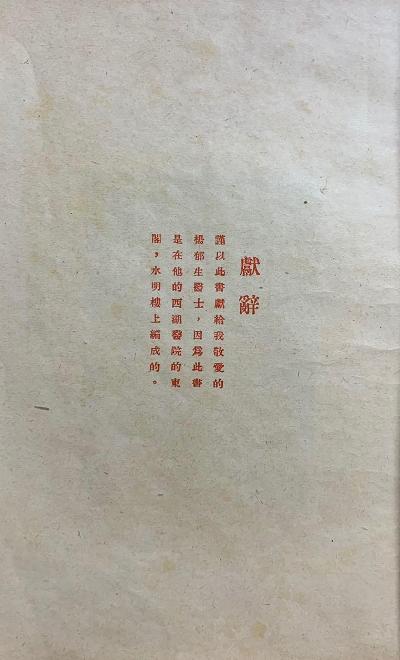 獻辭
謹以此書獻給我敬愛的
楊郁生醫士，因爲此書
是在他的西湖醫院的東
閣，水明樓上編成的。